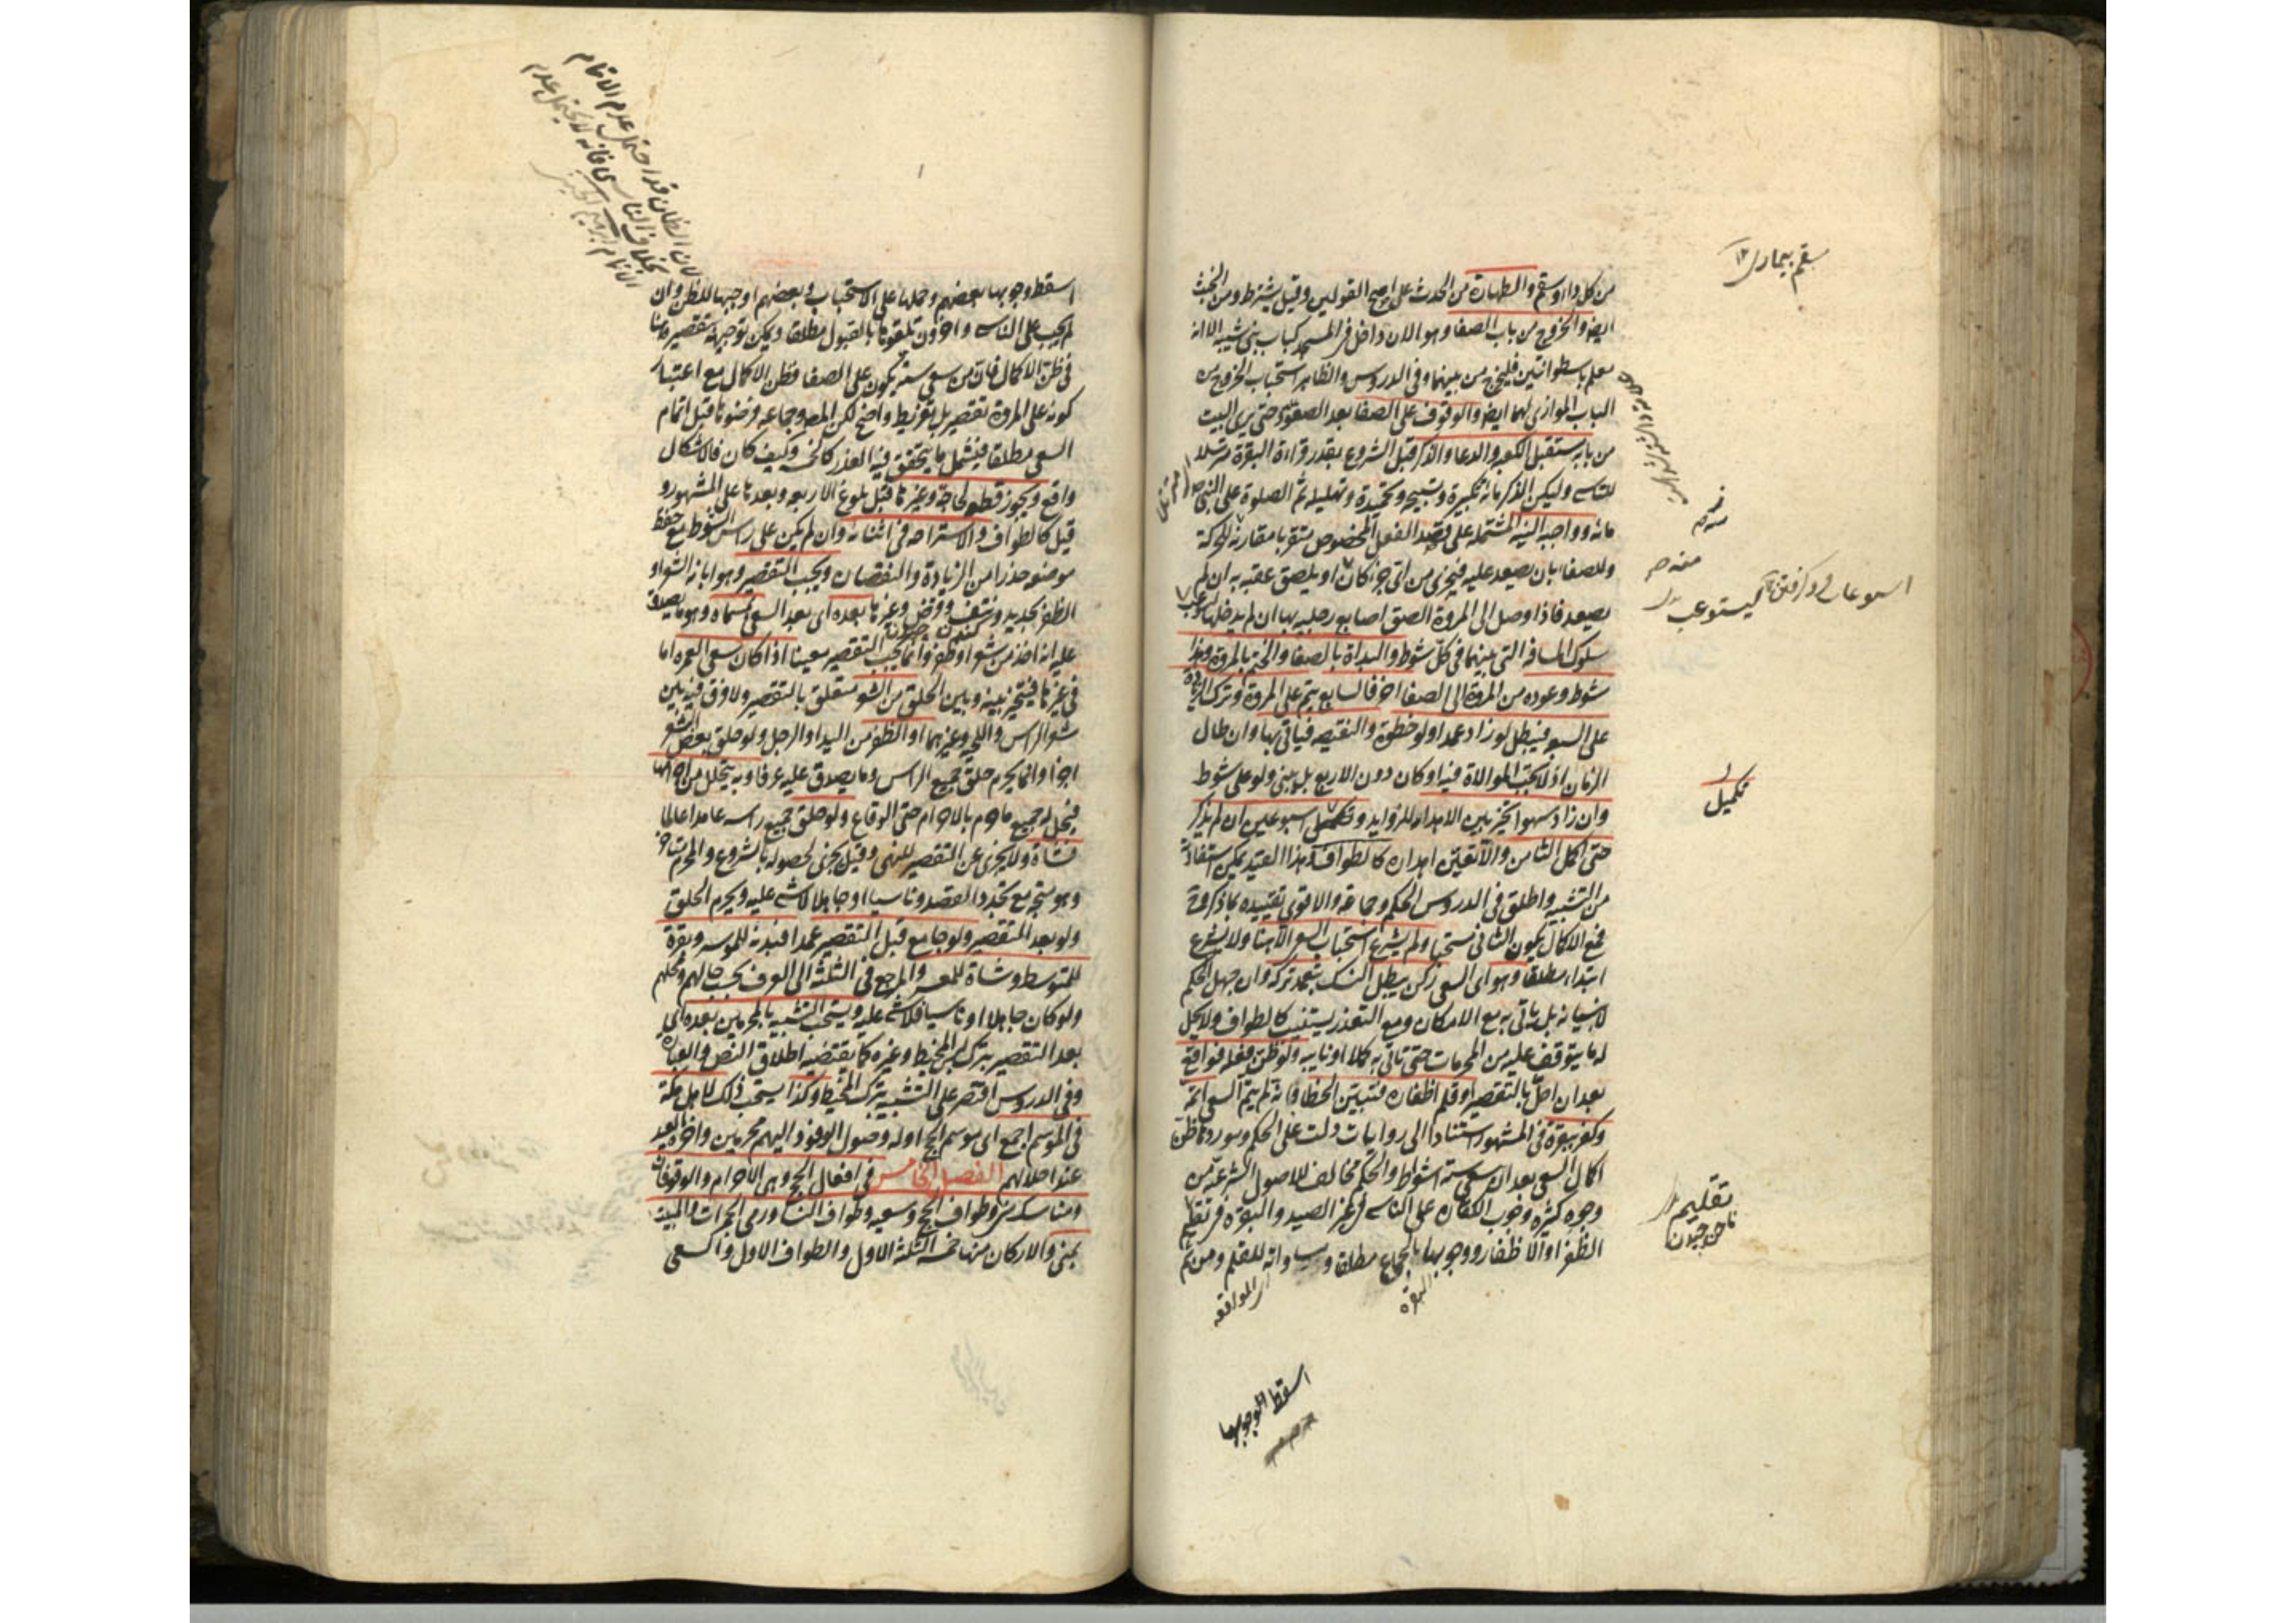 من كل داء وسقم والطهارة من الحدث على اصح القولين وقيل يشترط ومن الخبث
ايض والخروج من باب الصفا وهو الان داخل في المسجد كباب بني شيبه الا انه
معلم باسطوانتين فليخرج من بينهما وفي الدروس والظاهر استحباب الخروج من
الباب الموازي لهما ايض والوقوف على الصفا بعد الصعود حتى يرى البيت
من بابه مستقبل الكعبه والدعا والذكر قبل الشروع بقدر قراءة البقرة مترسلا
للتاسي وليكن الذكر مائة تكبيرة وتسبيحه وتحميدة وتهليله ثم الصلوة على النبي
مائه وواجبه النية المشتمله على قصد الفعل المخصوص متقربا مقارنة للحركة
وللصفا بان يصعد عليه فيجزى من اي جزء كان او يلصق عقبه به ان لم
يصعد فاذا وصل الى المروة الصق اصابع رجليه بها ان لم يدخلها ليستوعب
سلوك المسافه التي بينهما في كل شوط والبداة بالصفا والختم بالمروة فهذا
شوط وعوده من المروة الى الصفا اخر فالسابع يتم على المروة وترك الزيادة
على السبع فيبطل لو زاد عمدا ولو خطوة والنقيصه فيأتي بها وان طال
الزمان اذ لا تجب الموالاة فيه او كان دون الاربع بل يبني ولو على شوط
وان زاد سهوا تخير بين الاهدار للزوايد وتكميل اسبوعين ان لم يذكر
حتى اكمل الثامن والا تعين اهداره كالطواف وهذا القيد يمكن استفادته
من التشبيه واطلق في الدروس الحكم وجماعة والاقوى تقييده بما ذكر وح
فمع الاكمال يكون الثاني مستحبا ولم يشرع استحباب السعي الا هنا ولا يشرع
ابتداء مطلقا وهو اى السعي ركن يبطل النسك بتعمد تركه وان جهل الحكم
لا نسيانه بل يأتي به مع الامكان ومع التعذر يستنيب كالطواف ولا يحل
له ما يتوقف عليه من المحرمات حتى يأتي به كملا او نايبه ولو ظن فعله فواقع
بعد ان احل بالتقصير او قلم اظفاره فتبين الخطا وانه لم يتم السعي اتمه
وكفر ببقرة في المشهور استنادا الى روايات دلت على الحكم وموردها ظن
اكمال السعي بعد ان سعى ستة اشواط والحكم مخالف للاصول الشرعية من
وجوه كثيرة وجوب الكفارة على الناسي في غير الصيد والبقرة في تقليم
الظفر او الاظفار ووجوبها بالجماع مطلقا ومساواته للقلم ومن ثم
البقرة
اى الموافقه
اسقط وجوبها
سقم بيمارى ١٢
تكميل
تقليم
ناخن چيدن
ليستوعب
اسقط وجوبها بعضهم وحملها على الاستحباب وبعضهم اوجبها للظن وان
لم يجب على الناسي واخرون تلقوها بالقبول مطلقا ويمكن توجيهه بتقصيره هنا
في ظن الاكمال فان من سعى ستة يكون على الصفا فظن الاكمال مع اعتبار
كونه على المروة تقصير بل تفريط واضح لكن المصه وجماعه فرضوها قبل اتمام
السعي مطلقا فيشمل ما يتحقق فيه العذر كالخمسه وكيف كان فالاشكال
واقع ويجوز قطعه لحاجة وغيرها قبل بلوغ الاربعه وبعدها على المشهور و
قيل كالطواف والاستراحه في اثنائه وان لم يكن على راس الشوط مع حفظ
موضعه حذرا من الزيادة والنقصان ويجب التقصير وهو ابانة الشعر او
الظفر بحديد ونتف وقرض وغيرها بعده اى بعد السعي بمسماه وهو ما يصدق
عليه انه اخذ من شعر او ظفر وانما يجب التقصير معينا اذا كان سعى العمره اما
في غيرها فيتخير بينه وبين الحلق من الشعر متعلق بالتقصير ولا فرق فيه بين
شعر الراس واللحيه وغيرهما او الظفر من اليد او الرجل ولو حلق بعض الشعر
اجزأ وانما يحرم حلق جميع الراس وما يصدق عليه عرفا وبه يتحلل من احرامها
فيحل له جميع ما حرم بالاحرام حتى الوقاع ولو حلق جميع راسه عامدا عالما
فشاة ولا يجزى عن التقصير للنهي وقيل يجزى لحصوله بالشروع والمحرم متاخر
وهو متجه مع تجدد القصد وناسيا او جاهلا لا شئ عليه ويحرم الحلق
ولو بعد التقصير ولو جامع قبل التقصير عمدا فبدنة للموسر وبقرة
للمتوسط وشاة للمعسر والمرجع في الثلثة الى العرف بحسب حالهم ومحلهم
ولو كان جاهلا او ناسيا فلا شئ عليه ويستحب التشبه بالمحرمين بعده اى
بعد التقصير بترك لبس المخيط وغيره كما يقتضيه اطلاق النص والعبارة
وفي الدروس اقتصر على التشبه بترك المخيط وكذا يستحب ذلك لاهل مكة
في الموسم اجمع اى موسم الحج اوله وصول الوفود اليهم محرمين واخره العيد
عند احلالهم الفصل الخامس في افعال الحج وهي الاحرام والوقوفان
ومناسك منى وطواف الحج وسعيه وطواف النسا ورمي الجمرات والمبيت
بمنى والاركان منها خمسه الثلثة الاول والطواف الاول والسعي
لان الظان قد احتمل عدم الاتمام
بخلاف الناسي فانه لا يحتمل عدم